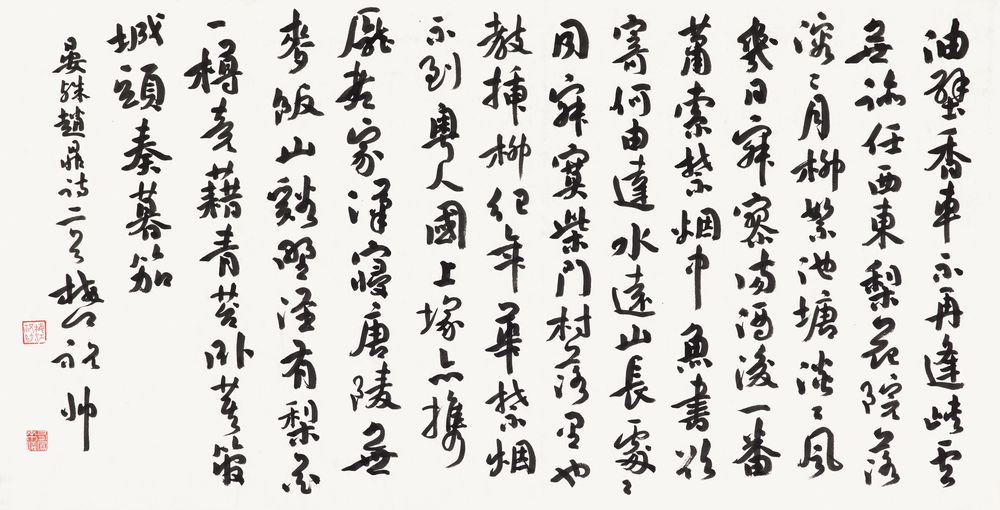 油壁香車不再逢峽雲
無跡任西東梨花院落
溶〻月柳絮池塘淡〻風
幾日寂寥傷酒後一番
蕭索禁烟中魚書欲
寄何由達水遠山長處〻
同寂寞柴門村落里也
教插柳纪年華禁烟
不到粤人國上塚亦携
龐老家漢寢唐陵無
麥飯山谿野徑有梨花
一樽竟藉青苔卧莫管
城頭奏暮笳
晏殊趙鼎詩二首 祝帅